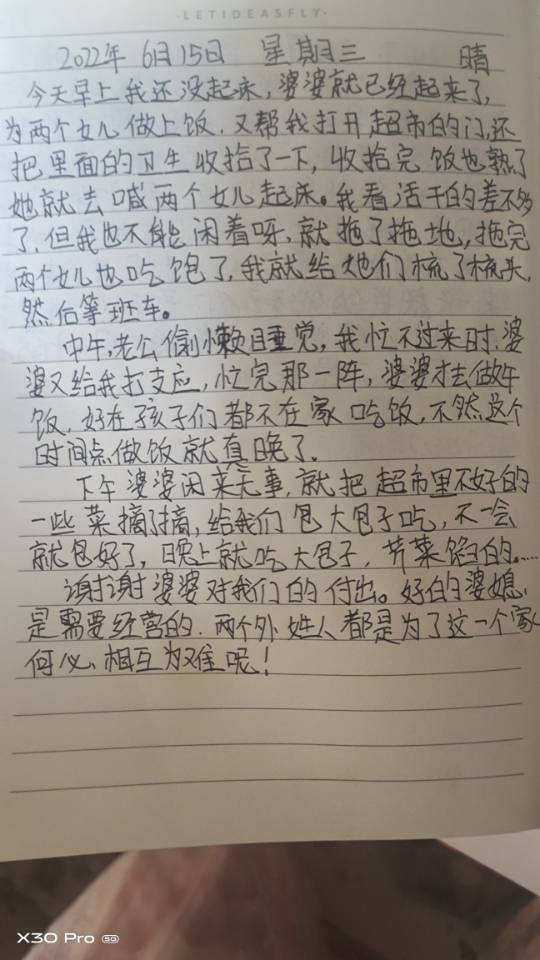 ·LETIDEASFLY·
2022年 6月15日 星期三 晴
今天早上我还没起床，婆婆就已经起来了，
为两个女儿做上饭，又帮我打开超市的门，还
把里面的卫生收拾了一下，收拾完饭也熟了
她就去喊两个女儿起床。我看活干的差不多
了，但我也不能闲着呀，就拖了拖地，拖完
两个女儿也吃饱了，我就给她们梳了梳头，
然后等班车。
中午，老公偷懒睡觉，我忙不过来时，婆
婆又给我打支应，忙完那一阵，婆婆才去做午
饭，好在孩子们都不在家吃饭，不然这个
时间点做饭就真晚了。
下午婆婆闲来无事，就把超市里不好的
一些菜摘了摘，给我们包大包子吃，不一会
就包好了，晚上就吃大包子，芹菜馅的……
谢谢婆婆对我们的付出。好的婆媳，
是需要经营的，两个外姓人都是为了这一个家
何必相互为难呢！
X30 Pro 5G